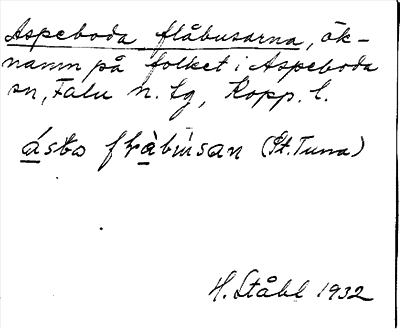 Aspeboda flåbusarna, ök-
namn på folket i Aspeboda
sn, Falu n. tg, Kopp. l.
ásto fràbusan (St. Tuna)
H. Ståhl 1932